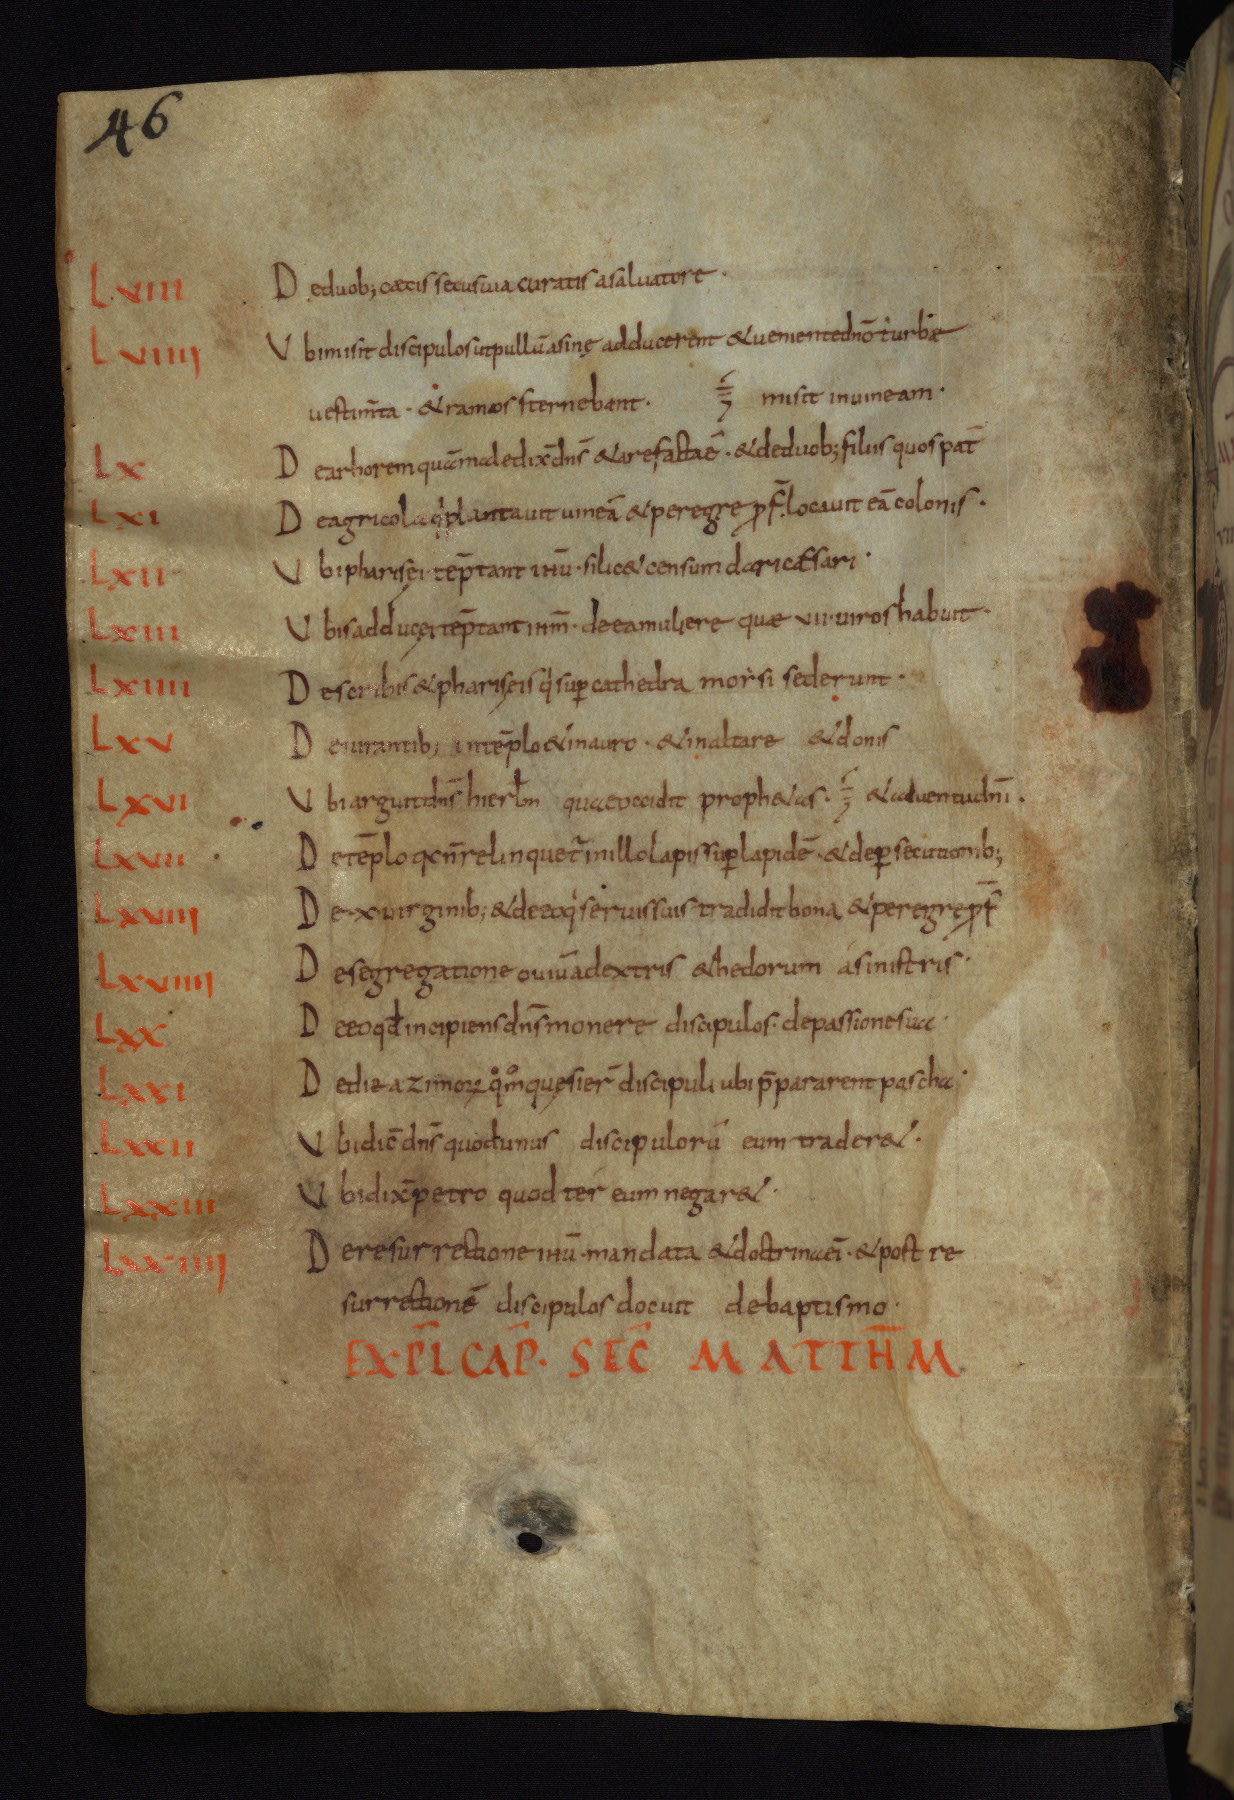 46
LVIII De duob; cęcis secus uia curatis a saluatore ·
LVIIII Ubi misit discipulos ut pullū asinę adducerent & uenientednō turbae
uestim̄ta · & ramos sternebant · misit in uineam ·
LX De arborem quā maledix̄ dn̄s & arefacta ē · & de duob; filiis quos pat̄
LXI De agricola q plantauit uineā & peregre p̄f locauit eā colonis ·
LXII Ubi pharisei tēptant ihū · si lic& censum dari cæsari ·
LXIII Ubi sadducęi tēptant ihm̄ · de ea muliere quæ VII · uiros habuit ·
LXIIII De scribis & phariseis q sup cathedra morsi sederunt ·
LXV De iurantib; in tēplo & in auro · & in altare & donis
LXVI Ubi arguit dn̄s hierlm quae occidit proph&as · & aduentu dn̄i .
LXVII De tēplo q n̄ relinquet̄ in illo lapis sup lapidē · & de psecutionib;
LXVIII De · x uirginib; & de eo q seruis suis tradidit bona & peregre p̄f
LXVIIII De segregatione ouiū a dextris & hedorum a sinistris ·
LXX De eo qd incipiens dn̄s monere discipulos · de passione sua ·
LXXI De die azimoꝝ qm̄ quęsier̄ discipuli ubi p̄pararent pascha ·
LXXII Ubi dic̄ dn̄s quod unus discipulorū eum trader& ·
LXXIII Ubi dix̄ petro quod ter eum negar& ·
LXXIIII De resurrectione ihū · mandata & doctrina eī · & post re
surrectionē discipulos docuit de baptismo ·
EXPL̄ CAP̄ · SEC̄ MATTH̄M